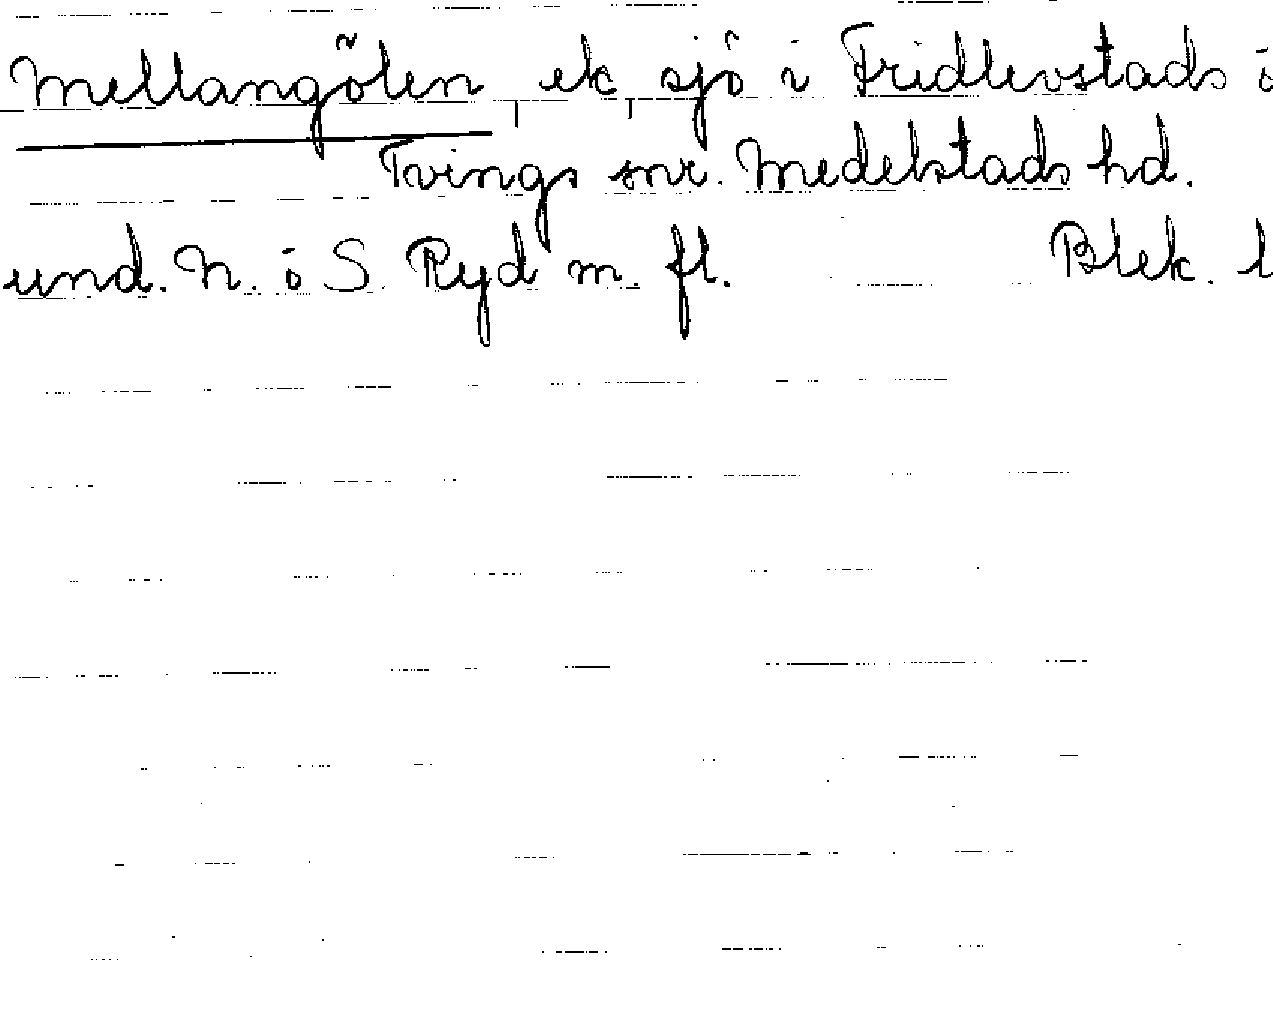 Mellangölen ek sjö i Fridlevstads o
Tvings snr. Medelstads hd.
und. N. o S. Ryd m. fl. Blek. l